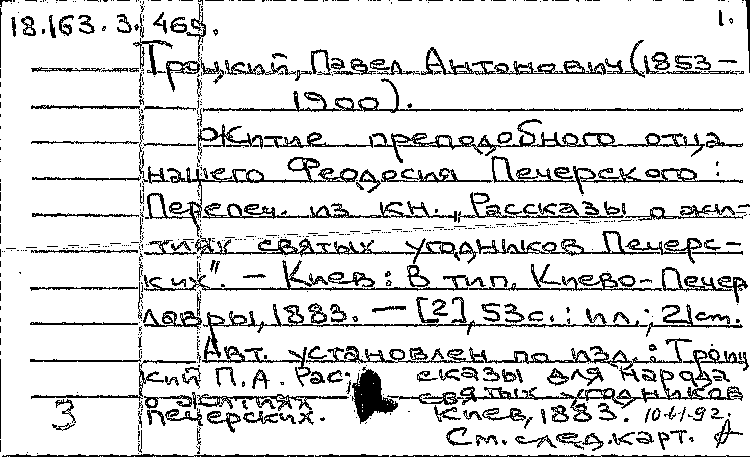 18.163.3.469. 1.
Троцкий, Павел Антонович (1853–
1900).
Житие преподобного отца
нашего Феодосия Печерского :
Перепеч. из кн. „Рассказы о жи-
тиях святых угодников Печерс-
ких". – Киев : В тип. Киево-Печер
лавры, 1883. – [2], 53с. : ил. ; 21см.
Авт. установлен по изд. : Троиц
кий П.А. Рас- сказы для народа
о житиях святых угодников
печерских. Киев, 1883. 10-61-92.
3 См. след. карт.